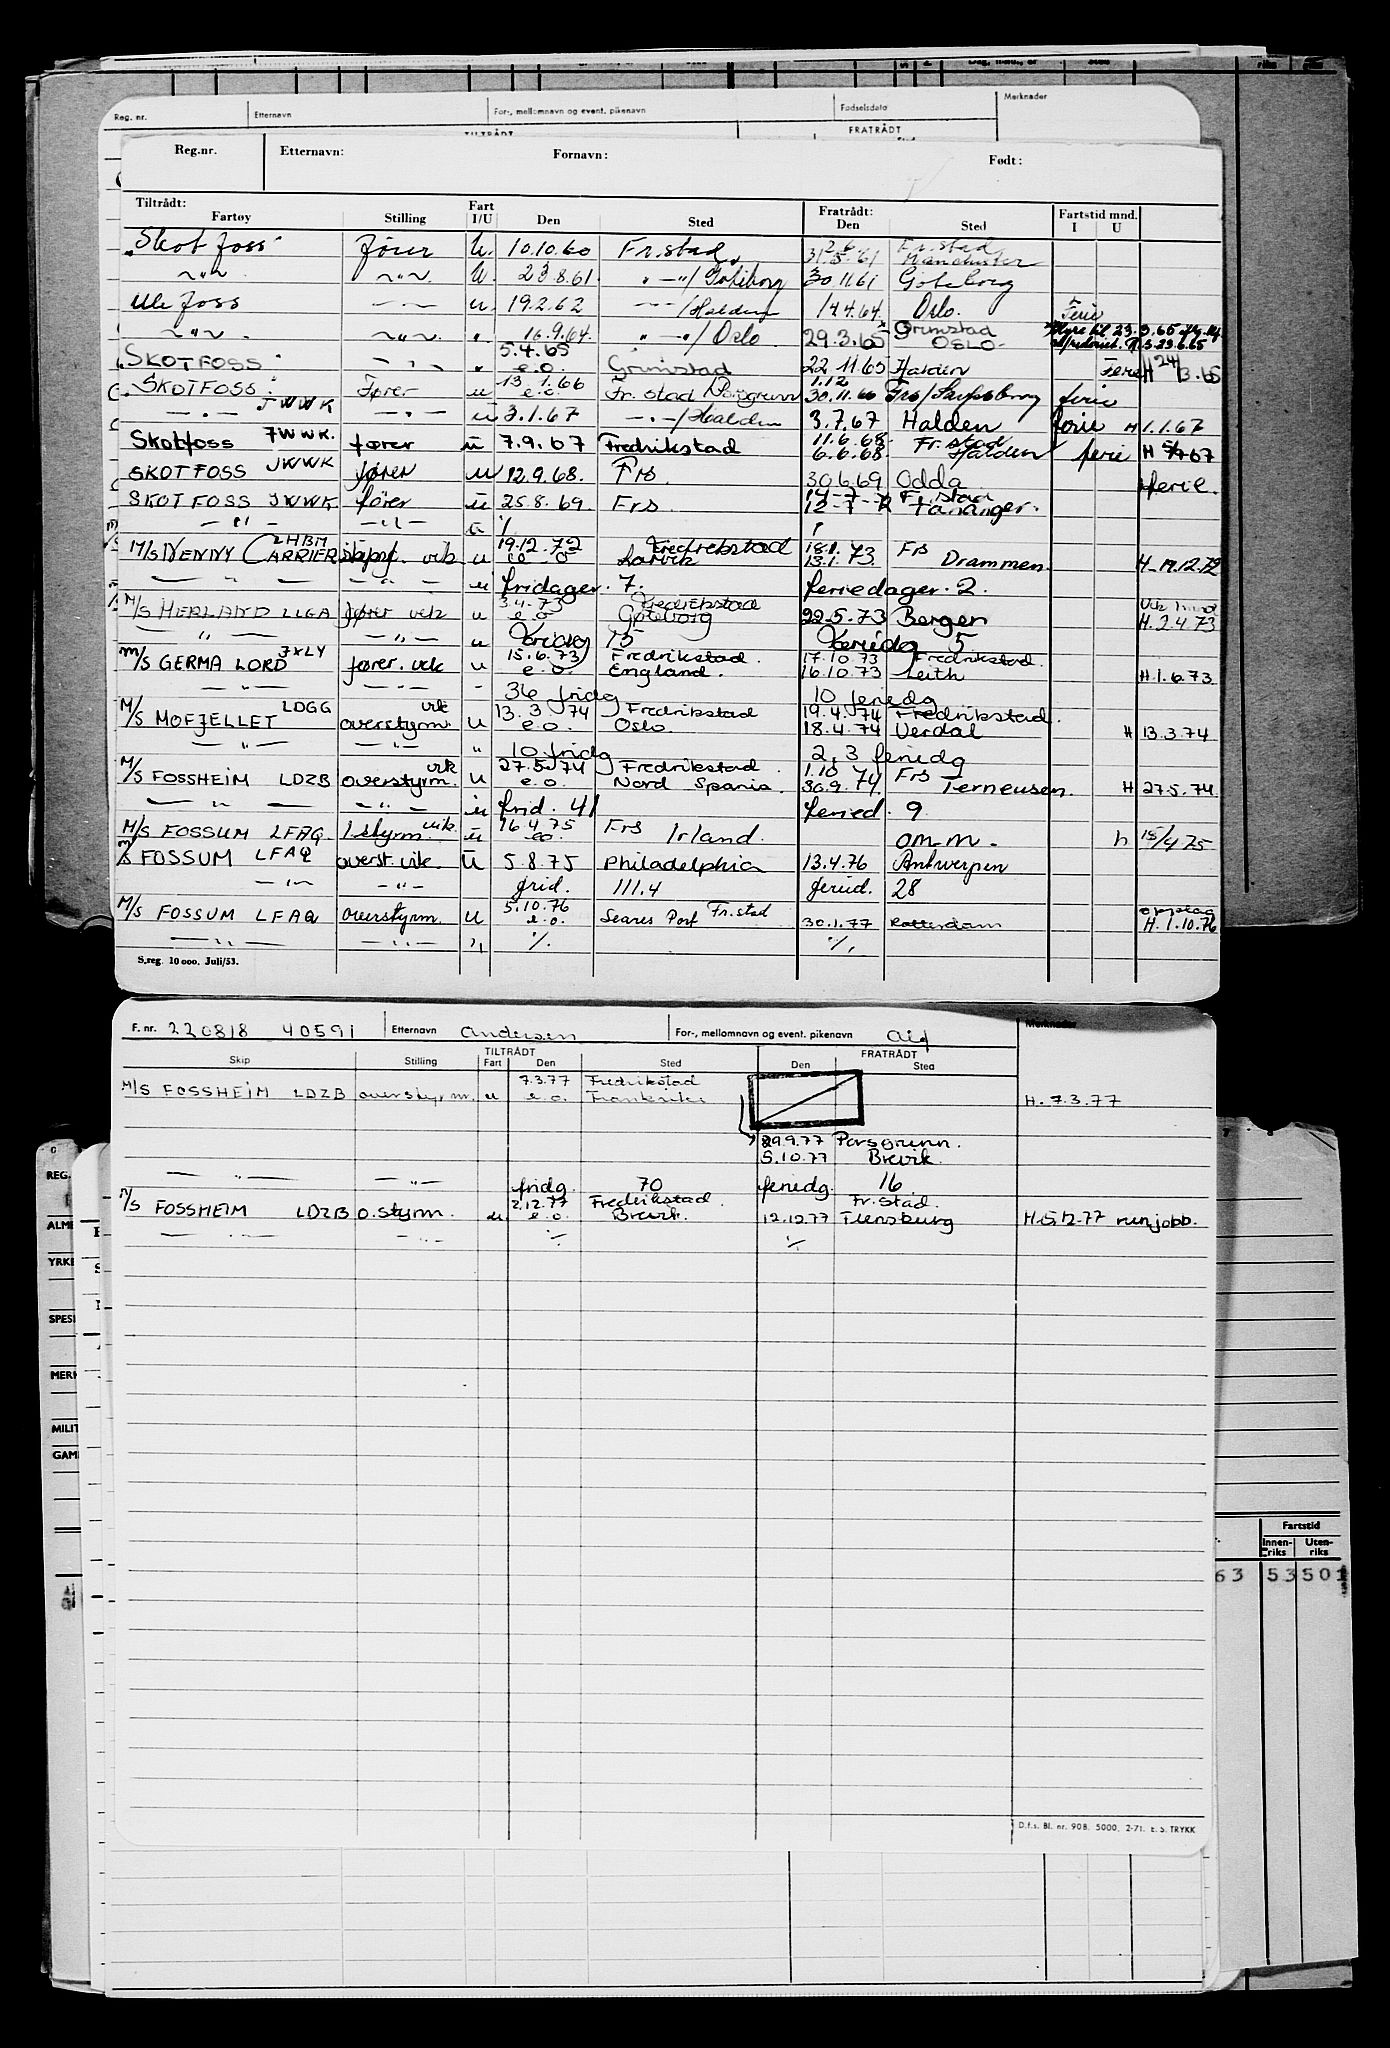 Reg. nr. Etternavn For-, mellomnavn og event. pikenavn Fødselsdato Merknader
TILTRÅDT FRATRÅDT
Reg.nr. Etternavn: Fornavn: Født:
Tiltrådt: Fratrådt: Fartstid mnd.
Fartøy Stilling Fart I/U Den Sted Den Sted I U
"Skotfoss" fører U. 10.10.60 Fr.stad 2.6 Fr.stad
31.5.61 Manchester
~"~ ~"~ U. 23.8.61 " —"/Göteborg 30.11.61 Göteborg
Ulefoss —"— u. 19.2.62 —"—/Halden 14.4.64 Oslo. Ferie
~"~ ~"~ " 16.9.64 " —"/Oslo 29.3.65 Grimstad
OSLO
"SKOTFOSS" " 5.4.65
e.o. Grimstad 22.11.65 Halden Ferie H 24/3.65
"SKOTFOSS" Fører u 13.1.66
e.o. Fr.stad/Porsgrunn 1.12
30.11.66 Frs/Sarpsborg ferie
—"— JWWK —"— u 3.1.67 —"—/Halden 3.7.67 Halden ferie H 1.1.67
Skotfoss JWWK. fører u 7.9.67 Fredrikstad 11.6.68. Fr.stad
6.6.68. Halden ferie H 5/9 67
SKOTFOSS JWWK fører u 12.9.68. Frs. 30.6.69 Odda ferie.
SKOTFOSS JWWK fører u 25.8.69. Frs. 14-7-72 Fr.stad
12-7-72 Tananger.
—"— —"— u ·/·
M/S NENNY CARRIER LHBM skipsf. vik u 19.12.72 Fredrikstad
e.o Larvik 18.1. Frs
13.1.73 Drammen H-19.12.72
—"— —"— u fridager. 7. feriedager. 2.
M/S HERLAND LLGA fører vik u 3.4.73 Fredrikstad
e.o Göteborg 22.5.73 Bergen H. 2.4.73
—"— —"— u Fridag 15 Feriedg 5
M/S GERMA LORD JXLY fører. vik u 15.6.73 Fredrikstad.
e.o. England. 17.10.73 Fredrikstad.
16.10.73 Leith H.1.6.73
—"— —"— " 36 fridg 10 feriedg
M/S MOFJELLET LDGG overstyrm. vik u 13.3.74 Fredrikstad
e.o. Oslo. 19.4.74 Fredrikstad.
18.4.74 Verdal H 13.3.74
—"— —"— " 10 fridg 2,3 feriedg
M/S FOSSHEIM LDZB overstyrm. vik u 27.5.74 Fredrikstad
e.o. Nord Spania. 1.10 Frs
30.9.74. Terneusen. H 27.5.74
—"— —"— u frid. 41 feried. 9
M/S FOSSUM LFAQ. 1.styrm. vik. u 16.4.75 Frs
e.o. Irland. om.m. h 15/4 75
M/S FOSSUM LFAQ overst. vik. u 5.8.75 Philadelphia 13.4.76 Antwerpen
—"— —"— frid. 111.4 feried. 28
M/S FOSSUM LFAQ overstyrm. u 5.10.76 Fr.stad
e.o. Seares Port 30.1.77 Rotterdam H. 1.10.76
—"— —"— " ·/· ·/·
S.reg. 10 000. Juli/53.
F. nr. 220818 40591 Etternavn Andersen For-, mellomnavn og event. pikenavn Alf Merknader
TILTRÅDT FRATRÅDT
Skip Stilling Fart Den Sted Den Sted
M/S FOSSHEIM LDZB overstyrm. u 7.3.77 Fredrikstad
e.o. Frankrike H. 7.3.77
29.9.77 Porsgrunn.
5.10.77 Brevik.
—"— —"— fridg. 70 feriedg. 16
M/S FOSSHEIM LDZB o.styrm. u. 2.12.77 Fredrikstad.
e.o. Brevik. Fr.stad.
12.12.77 Flensburg H.5.12.77 runjobb.
—"— —"— ·/· ·/·
REG.
YRKE
MILIT
Fartstid
Innenriks Utenriks
63 53 501
D.f.s. Bl. nr. 908. 5000. 2-71. E.S. TRYKK